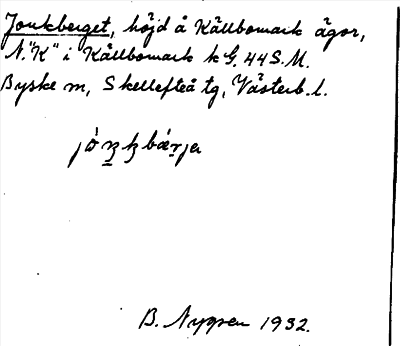 Jonkberget, höjd å Källbomark ägor,
N. "K" i Källbomark k G. 44 S.M.
Byske sn, Skellefteå tg, Västerb. l.
B. Nyman 1932.